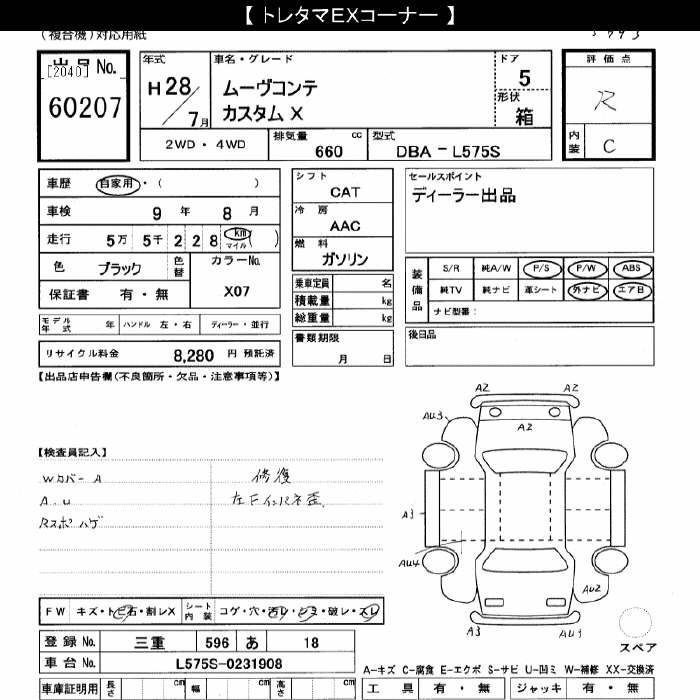 【 トレタマEXコーナー 】
(複合機)対応用紙
出品 No.
[2040]
60207
年式
H28/7月
車名・グレード
ムーヴコンテ
カスタム X
ドア
5
形状
箱
評価点
R
内装
C
2WD・4WD
排気量
660
cc
型式
DBA-L575S
車歴 自家用・( )
車検 9年 8月
走行 5万 5千 2 2 8 km マイル ( )
色 ブラック 色替 カラーNo.
保証書 有・無 X07
シフト
CAT
冷房
AAC
燃料
ガソリン
セールスポイント
ディーラー出品
乗車定員 名
積載量 kg
総重量 kg
装備品
S/R 純A/W P/S P/W ABS
純TV 純ナビ 革シート 外ナビ エアB
ナビ型番:
モデル年式 年 ハンドル 左・右 ディーラー・並行
リサイクル料金 8,280 円 預託済
書類期限
月 日
後日品
【出品店申告欄(不良箇所・欠品・注意事項等)】
A2 A2
AU3
A2
【検査員記入】
Wカバー A 修復
A.U 左Fインパネ歪
Rスポ ハゲ
A3
AU4
AU2
A3 AU1
FW キズ・トビ石・割レX シート内装 コゲ・穴・汚レ・シミ・破レ・スレ
スペア
登録 No. 三重 596 あ 18
車台 No. L575S-0231908
A-キズ C-腐食 E-エクボ S-サビ U-凹ミ W-補修 XX-交換済
車庫証明用 長さ cm 幅 cm 高さ cm
工具 有・無 ジャッキ 有・無